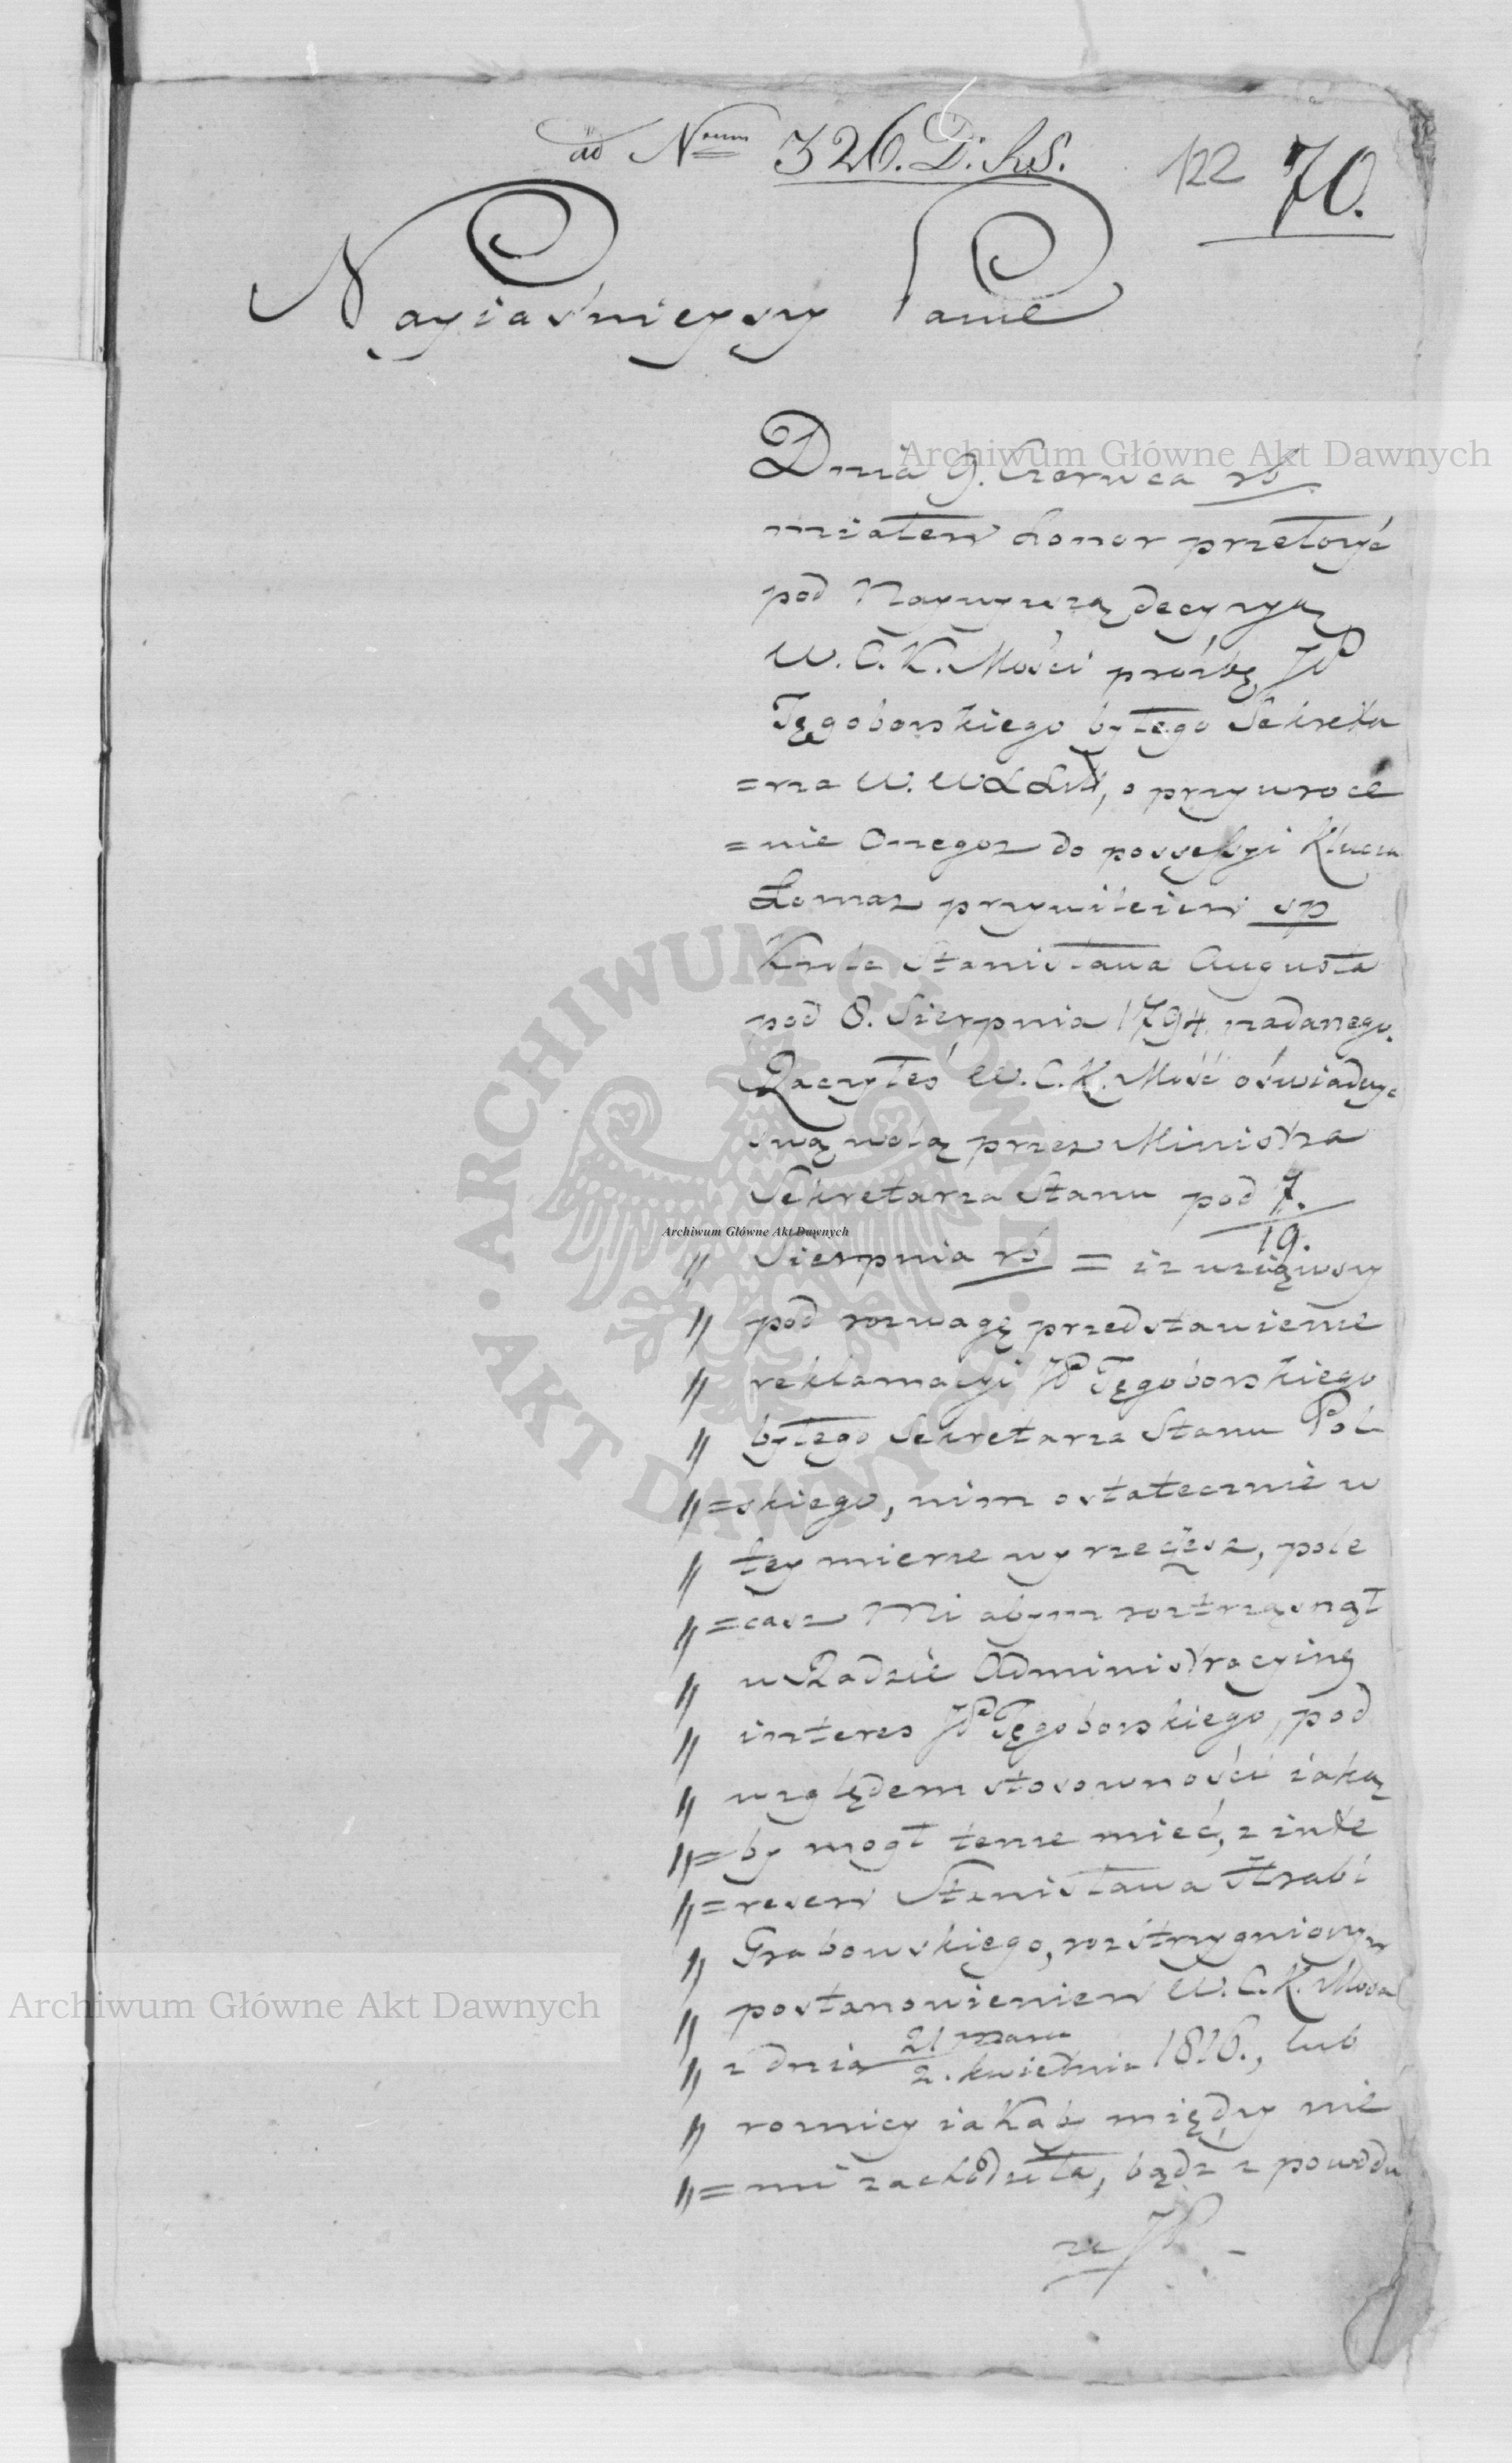 ad Num 326. D. R.S. 122 70.
Nayiaśnieyszy Panie
Dnia 9. Czerwca rb
miałem honor przełożyć
pod Naywyższą decyzyą
W. C. K. Mości prośbę JP
Tęgoborskiego byłego Sekreta
=rza W. W X Litt, o przywroce
=nie Onegoż do possessyi Klucza
Łomaz przywileiem sp
Krola Stanisława Augusta
pod 8. Sierpnia 1794 nadanego.
Raczyłeś W. C. K. Mość oświadczyć
swą wolą przez Ministra
Sekretarza Stanu pod 7./19.
" Sierpnia rb = iż wziąwszy
" pod rozwagę przedstawienie
" reklamacyi JP Tęgoborskiego
" byłego Sekretarza Stanu Pol
" =skiego, nim ostatecznie w
" tey mierze wyrzeczesz, pole
" =casz Mi abym roztrząsnął
" w Radzie Administracyiney
" interes JP Tęgoborskiego, pod
" względem stosowności iaką
" =by mogł tenże mieć, z inte
" =resem Stanisława Hrabi
" Grabowskiego, rozstrzygnionym
" postanowieniem W. C. K. Mości
" z dnia 21 marca/2. kwietnia 1816., lub
" rożnicy iakaby między nie
" =mi zachodziła, bądź z powodu
że JP.
Archiwum Główne Akt Dawnych
Archiwum Główne Akt Dawnych
Archiwum Główne Akt Dawnych
ARCHIWUM GŁÓWNE • AKT DAWNYCH •